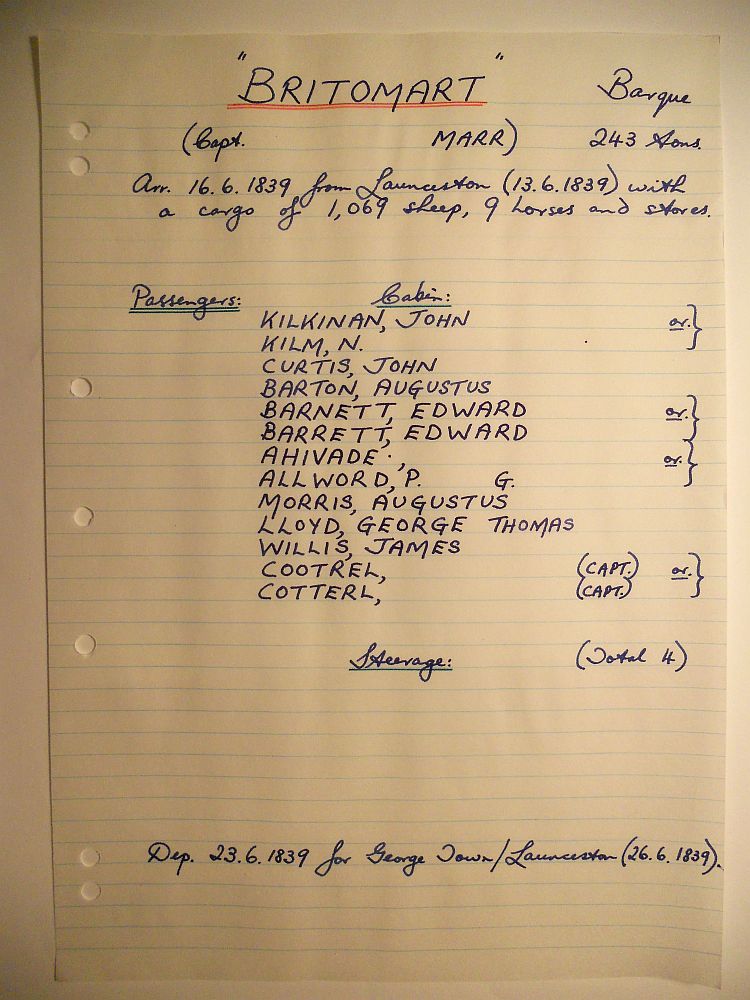 "BRITOMART" Barque
(Capt. MARR) 243 tons.
Arr. 16.6.1839 from Launceston (13.6.1839) with
a cargo of 1,069 sheep, 9 horses and stores.
Passengers: Cabin:
KILKINAN, JOHN or. }
KILM, N.
CURTIS, JOHN
BARTON, AUGUSTUS
BARNETT, EDWARD or. }
BARRETT, EDWARD
AHIVADE ., or. }
ALLWORD, P. G.
MORRIS, AUGUSTUS
LLOYD, GEORGE THOMAS
WILLIS, JAMES
COOTREL, (CAPT.) or. }
COTTERL, (CAPT.)
Steerage: (Total 4)
Dep. 23.6.1839 for George Town/Launceston (26.6.1839).